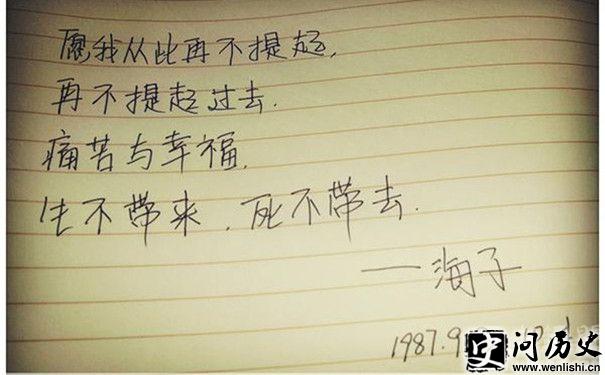 愿我从此再不提起,
再不提起过去.
痛苦与幸福,
生不带来,死不带去.
——海子
1987.9
史问历史
www.wenlishi.cn